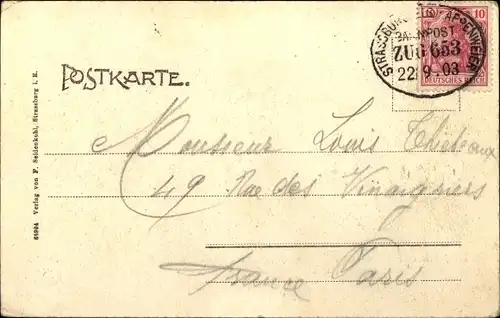 STRASSBURG APPENWEIER
BAHNPOST
ZUG 653
22 9 03
10
DEUTSCHES REICH
POSTKARTE.
Monsieur Louis Thiebaux
49 Rue des Vinaigriers
France Paris
61904 Verlag von F. Seidenkohl, Strassburg i. E.